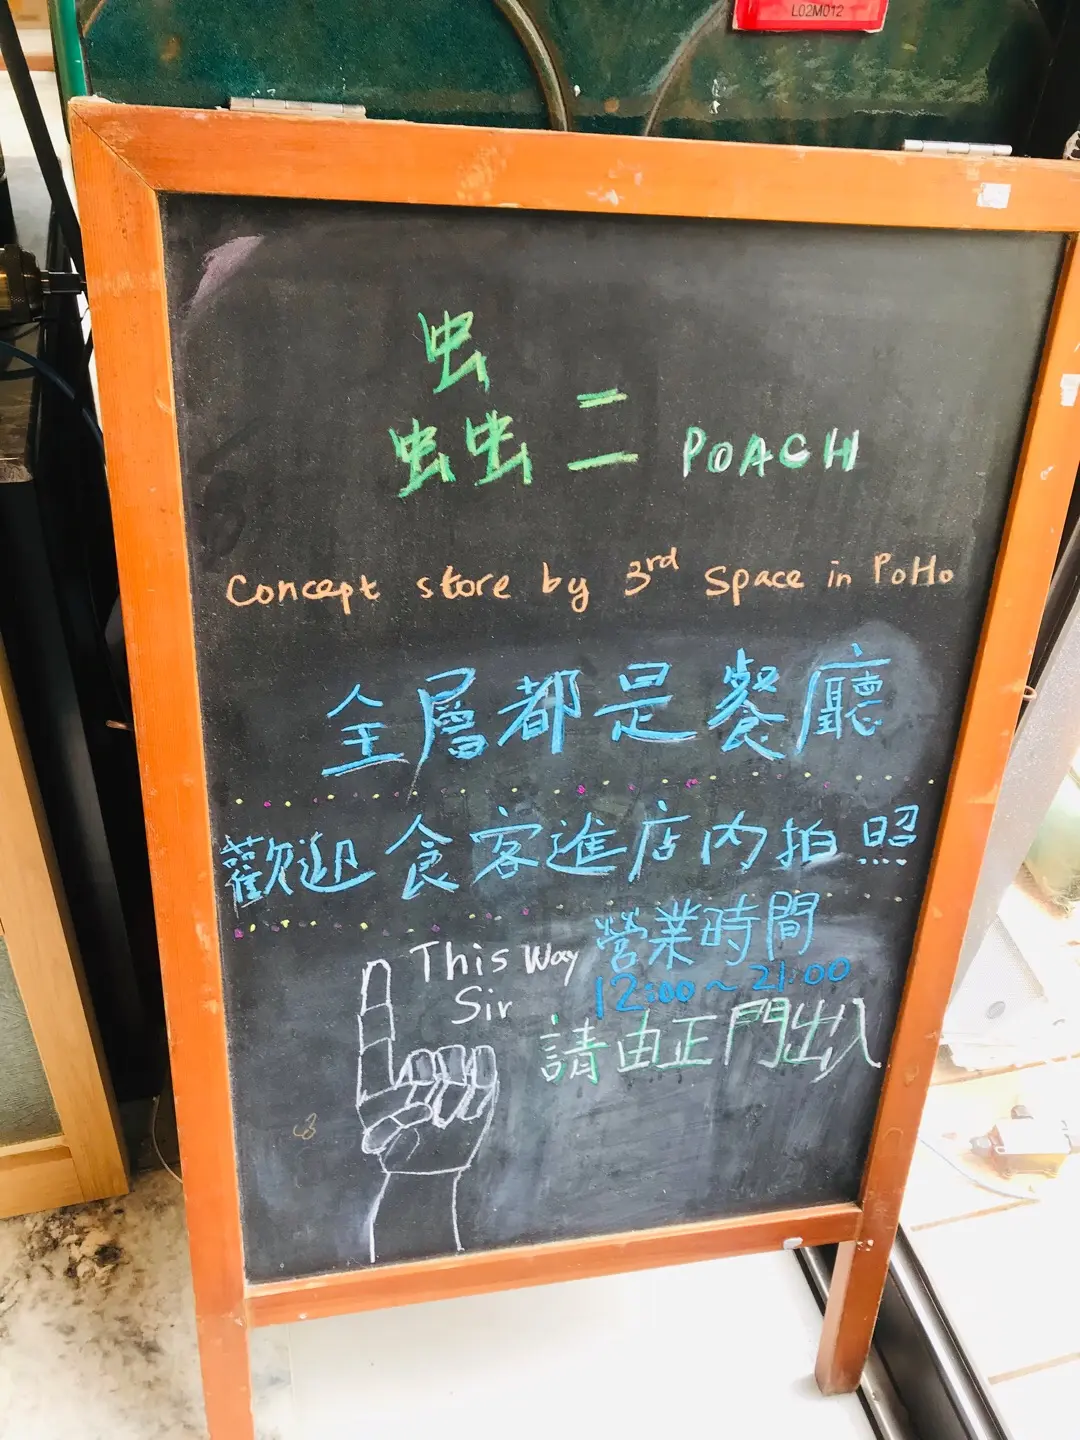 L02M012
蟲二 POACH
Concept store by 3rd Space in PoHo
全層都是餐廳
歡迎食客進店內拍照
營業時間
12:00~21:00
This Way
Sir
請由正門出入